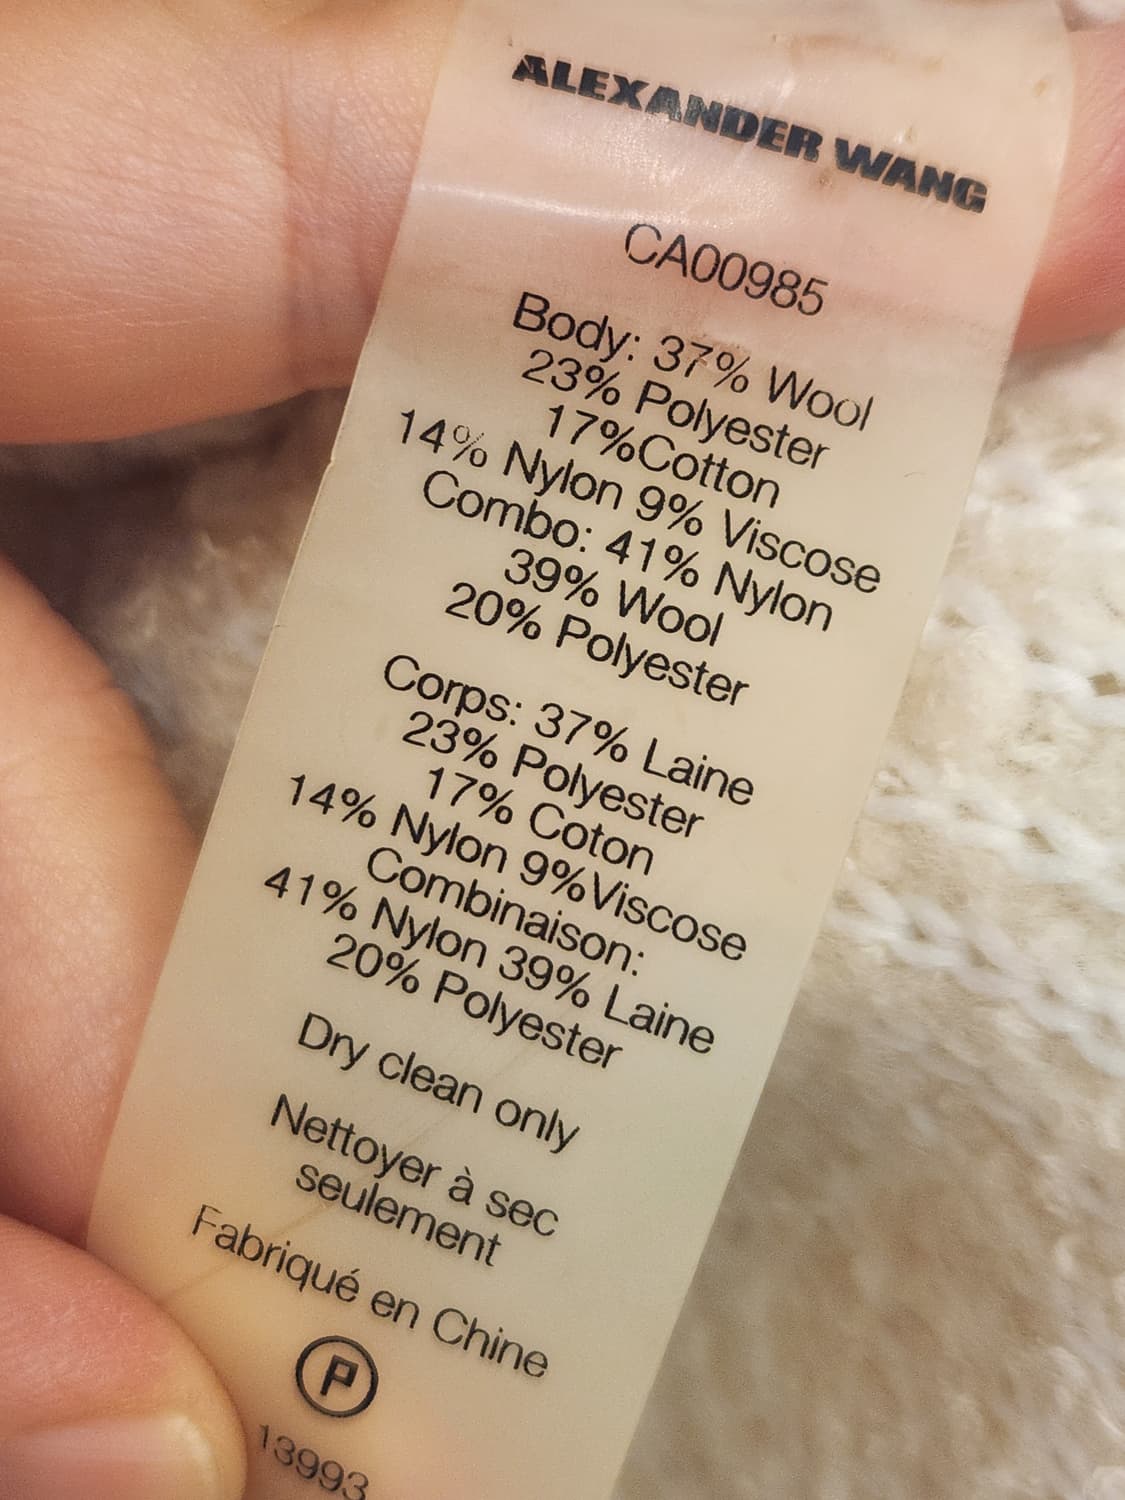 ALEXANDER WANG
CA00985
Body: 37% Wool
23% Polyester
17%Cotton
14% Nylon 9% Viscose
Combo: 41% Nylon
39% Wool
20% Polyester
Corps: 37% Laine
23% Polyester
17% Coton
14% Nylon 9%Viscose
Combinaison:
41% Nylon 39% Laine
20% Polyester
Dry clean only
Nettoyer à sec
seulement
Fabriqué en Chine
P
13993